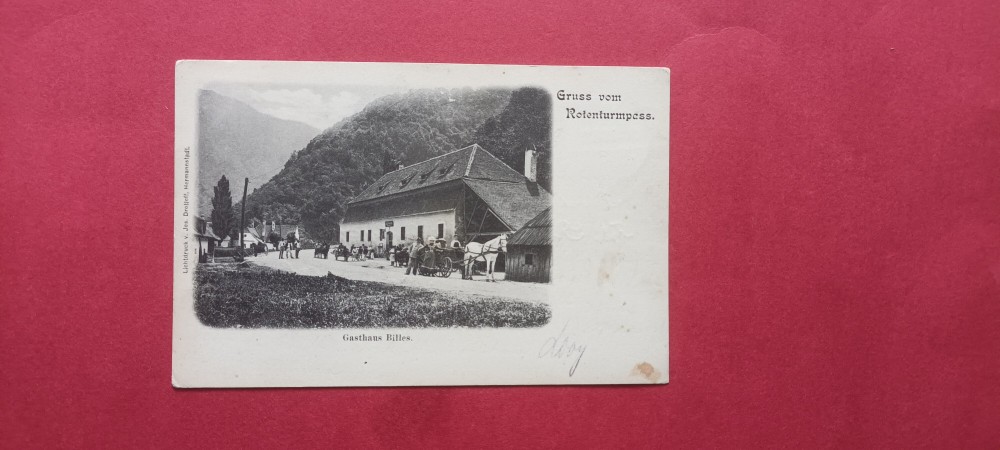 Gruss vom
Rotenturmpass.
Lichtdruck v. Jos. Drotleff, Hermannstadt.
Gasthaus Billes.